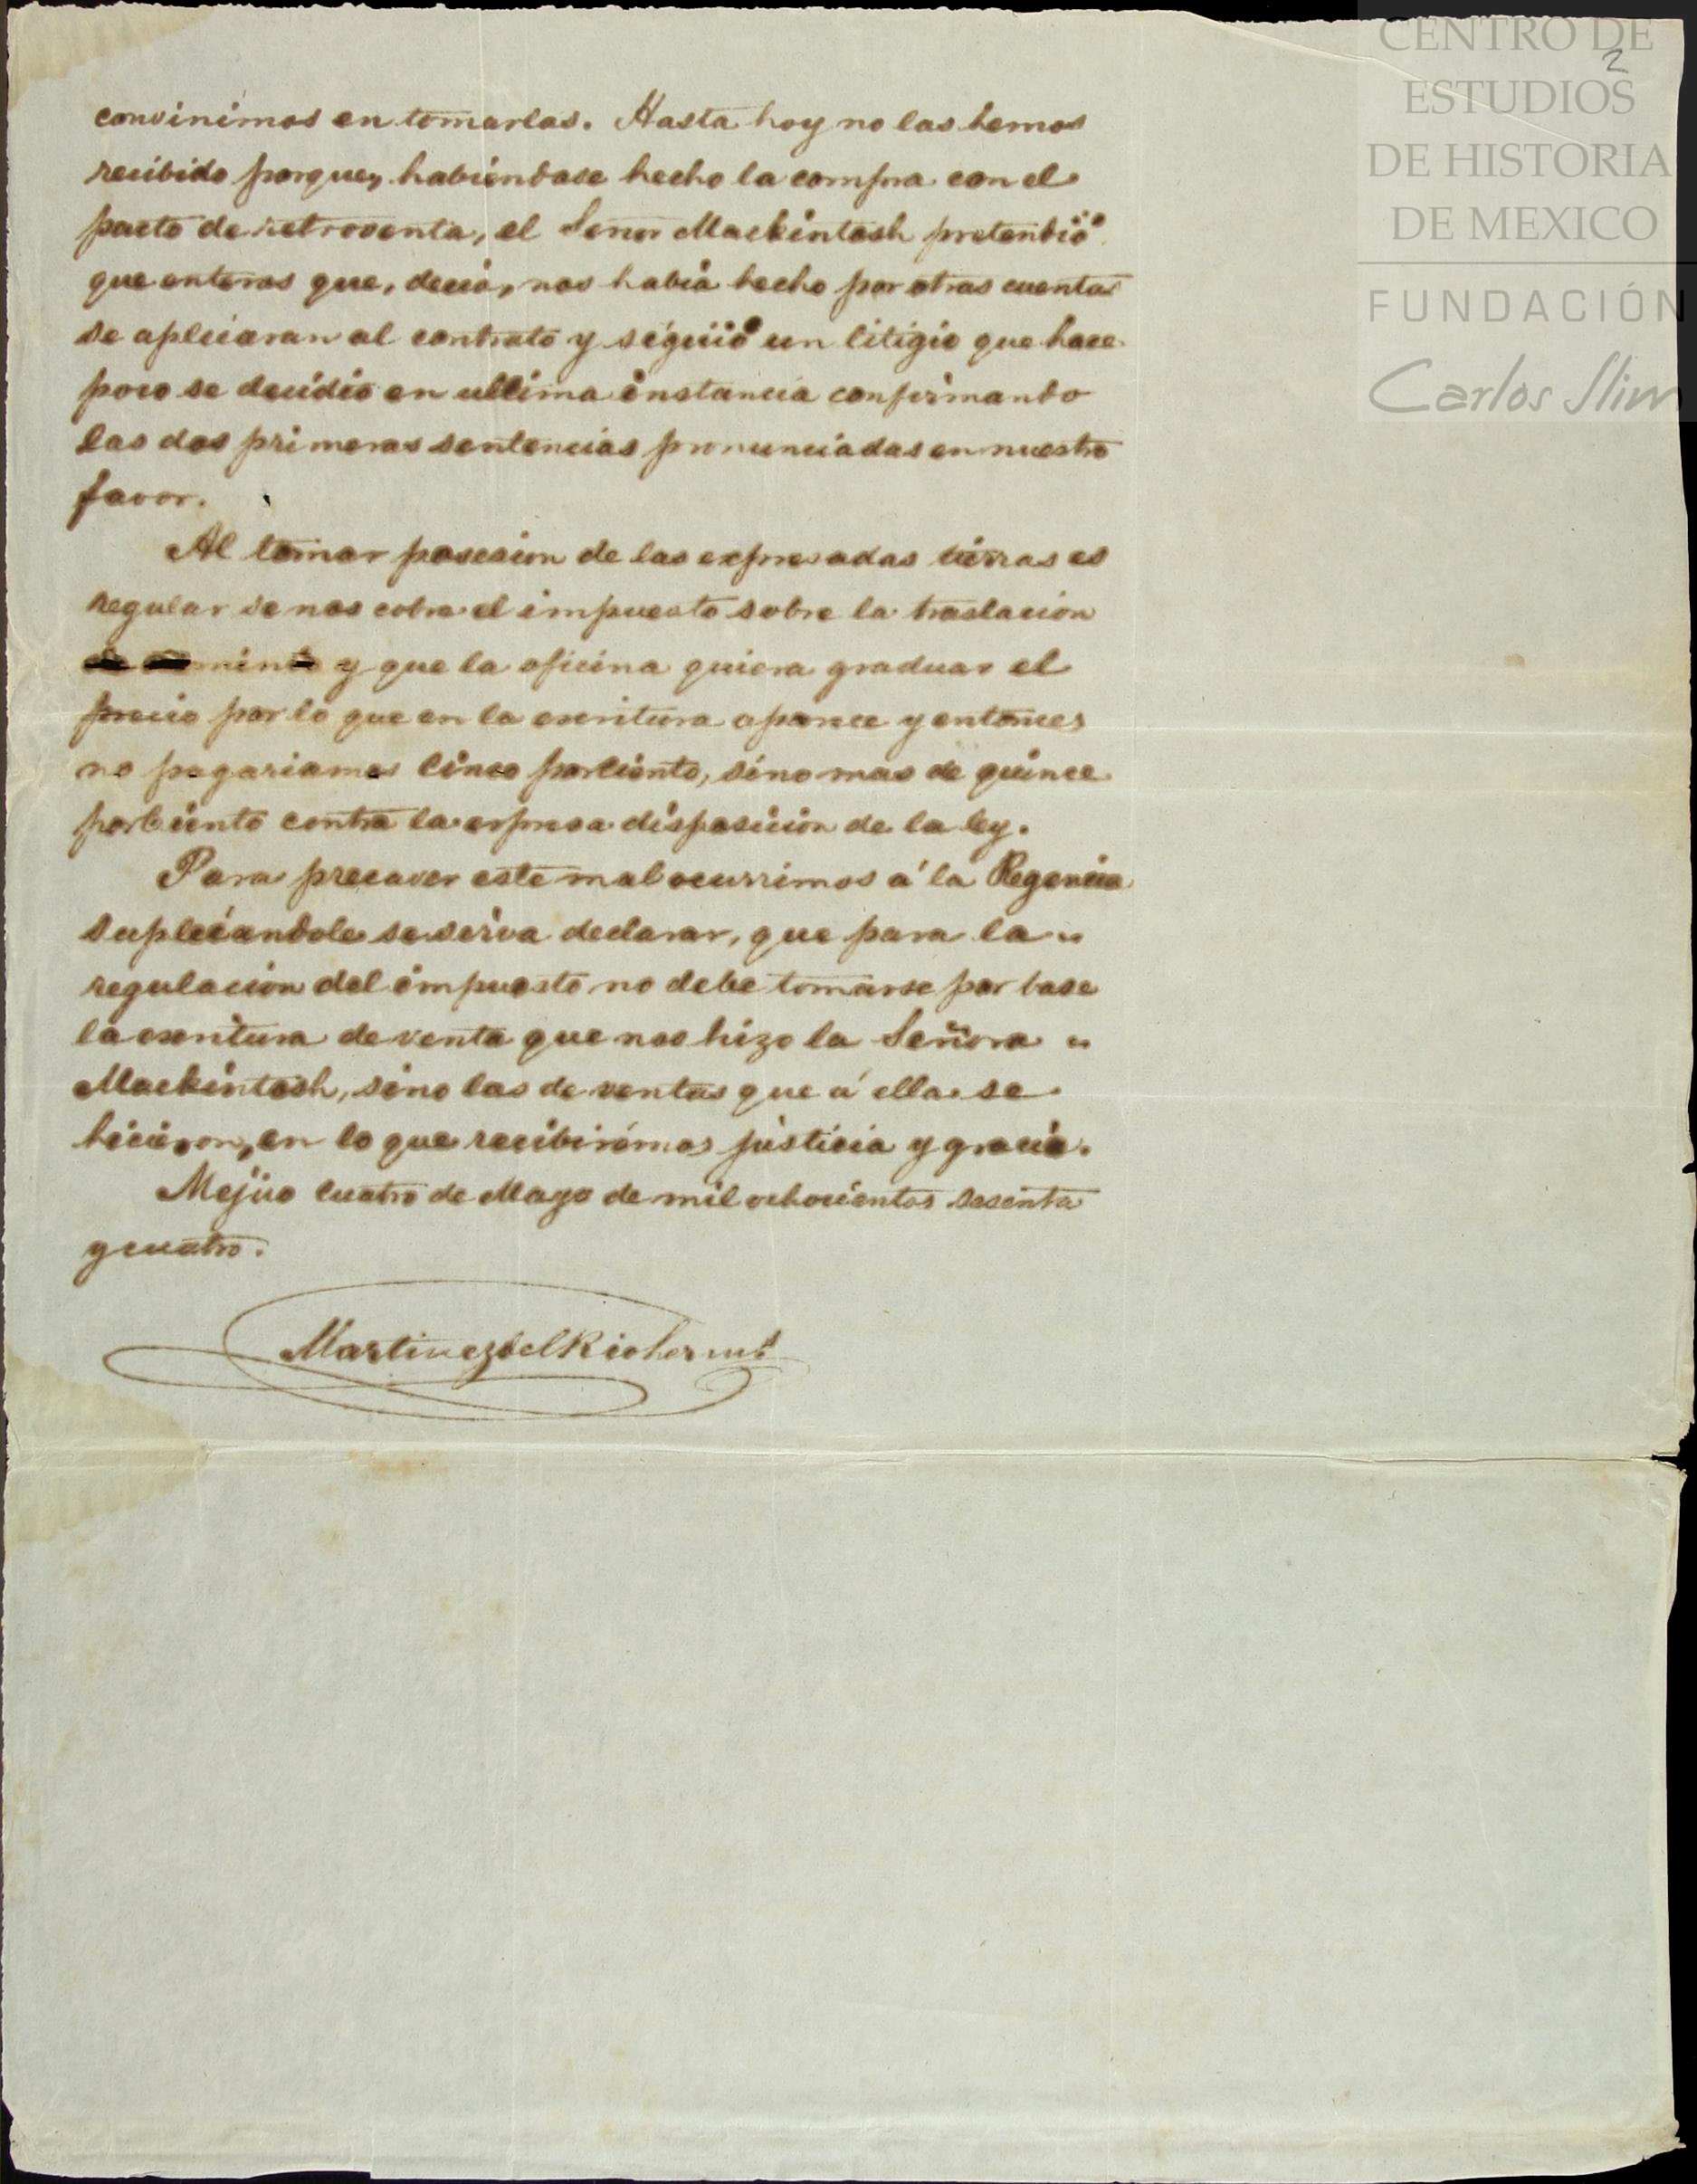 CENTRO DE
ESTUDIOS
DE HISTORIA
DE MEXICO
FUNDACIÓN
Carlos Slim
2
convinimos en tomarlas. Hasta hoy no las hemos
recibido porque, habiéndose hecho la compra con el
pacto de retroventa, el Señor Mackintosh pretendió
que enteros que, decia, nos habia hecho por otras cuentas
se aplicaran al contrato y siguió un litigio que hace
poco se decidió en ultima instancia confirmando
las dos primeras sentencias pronunciadas en nuestro
favor.
Al tomar posesion de las expresadas tierras es
regular se nos cobre el impuesto sobre la traslacion
y que la oficina quiera graduar el
precio por lo que en la escritura aparece y entonces
no pagariamos cinco porciento, sino mas de quince
porciento contra la espresa disposicion de la ley.
Para precaver este mal ocurrimos á la Regencia
suplicandole se sirva declarar, que para la
regulacion del impuesto no debe tomarse por base
la escritura de venta que nos hizo la Señora
Mackintosh, sino las de ventas que á ella se
hicieron, en lo que recibirémos justicia y gracia.
Mejico cuatro de Mayo de mil ochocientos sesenta
y cuatro.
Martinez del Rio herms